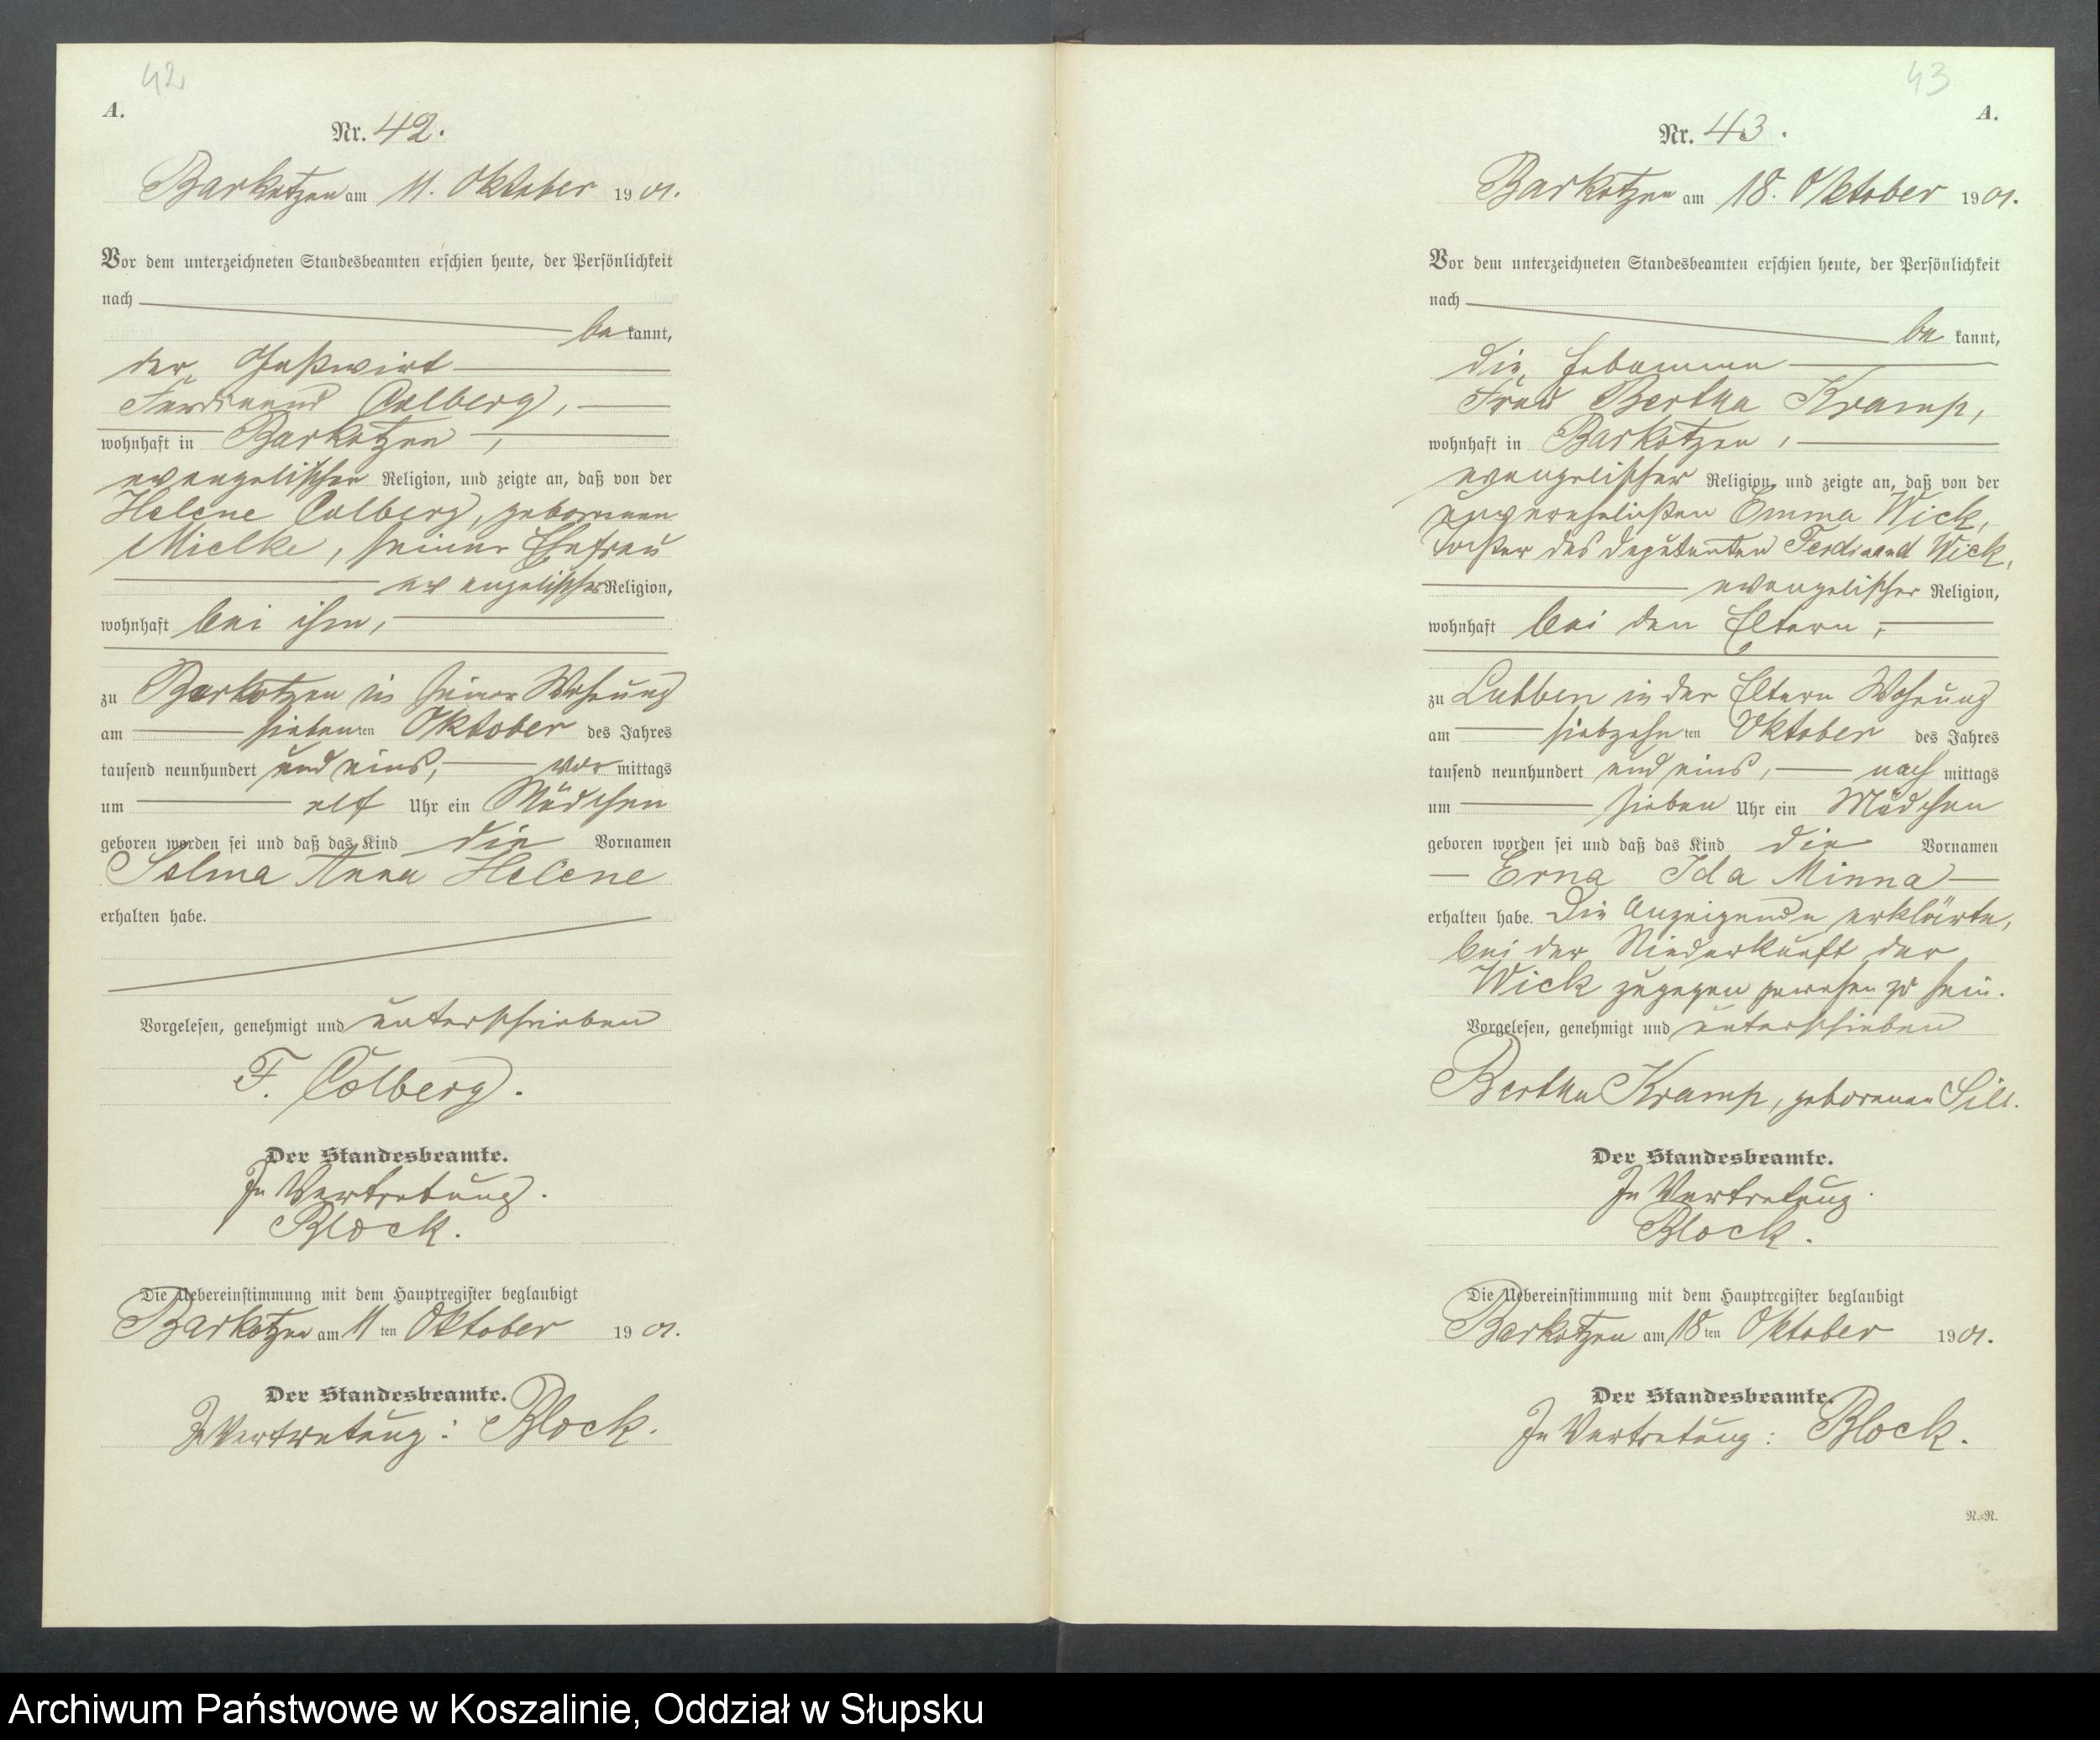 42
A.
Nr. 42.
Barkotzen am 11. Oktober 1901.
Vor dem unterzeichneten Standesbeamten erschien heute, der Persönlichkeit
nach
bekannt,
der Gastwirt
Ferdinand Colberg,
wohnhaft in Barkotzen,
evangelischer Religion, und zeigte an, daß von der
Helene Colberg, geborenen
Mielke, seiner Ehefrau
evangelischer Religion,
wohnhaft bei ihm,
zu Barkotzen in seiner Wohnung
am siebenten Oktober des Jahres
tausend neunhundert und eins, vormittags
um elf Uhr ein Mädchen
geboren worden sei und daß das Kind die Vornamen
Selma Anna Helene
erhalten habe.
Vorgelesen, genehmigt und unterschrieben
F. Colberg.
Der Standesbeamte.
In Vertretung.
Block.
Die Uebereinstimmung mit dem Hauptregister beglaubigt
Barkotzen am 11ten Oktober 1901.
Der Standesbeamte.
In Vertretung: Block.
43
A.
Nr. 43.
Barkotzen am 18. Oktober 1901.
Vor dem unterzeichneten Standesbeamten erschien heute, der Persönlichkeit
nach
bekannt,
die Hebamme
Frau Bertha Kramp,
wohnhaft in Barkotzen,
evangelischer Religion, und zeigte an, daß von der
unverehelichten Emma Wick,
Tochter des Deputanten Ferdinand Wick,
evangelischer Religion,
wohnhaft bei den Eltern,
zu Lubben in der Eltern Wohnung
am siebzehnten Oktober des Jahres
tausend neunhundert und eins, nachmittags
um sieben Uhr ein Mädchen
geboren worden sei und daß das Kind die Vornamen
Erna Ida Minna
erhalten habe. Die Anzeigende erklärte,
bei der Niederkunft der
Wick zugegen gewesen zu sein.
Vorgelesen, genehmigt und unterschrieben
Bertha Kramp, geborenen Sill.
Der Standesbeamte.
In Vertretung.
Block.
Die Uebereinstimmung mit dem Hauptregister beglaubigt
Barkotzen am 18ten Oktober 1901.
Der Standesbeamte.
In Vertretung: Block.
N.=R.
Archiwum Państwowe w Koszalinie, Oddział w Słupsku